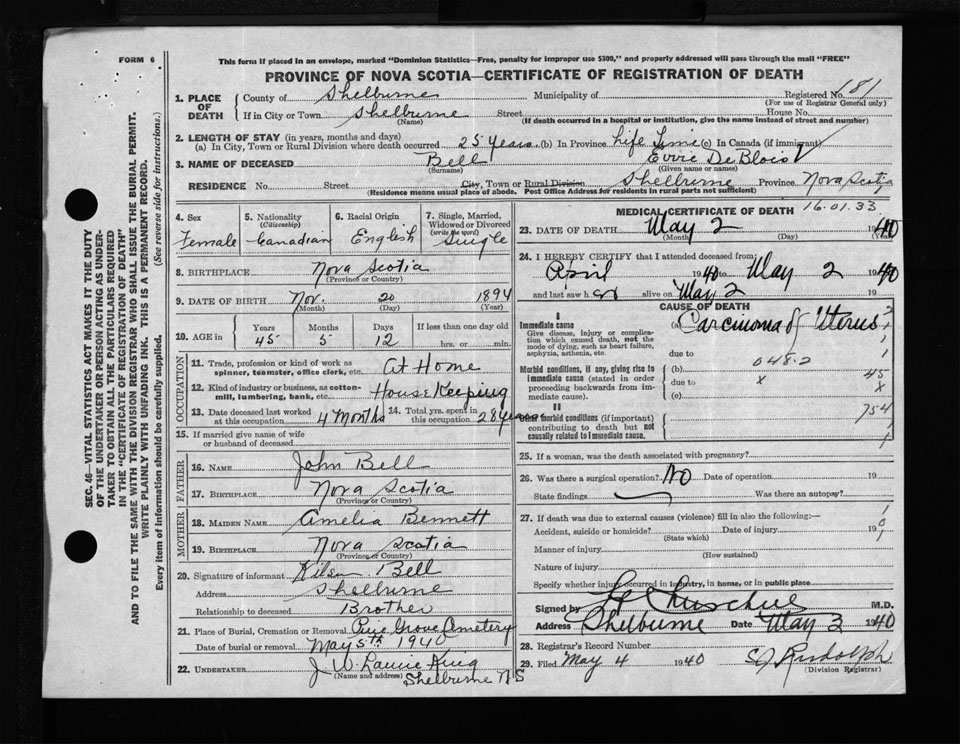 FORM 6
This form if placed in an envelope, marked "Dominion Statistics—Free, penalty for improper use $300," and properly addressed will pass through the mail "FREE"
PROVINCE OF NOVA SCOTIA—CERTIFICATE OF REGISTRATION OF DEATH
SEC. 46—VITAL STATISTICS ACT MAKES IT THE DUTY
OF THE UNDERTAKER OR PERSON ACTING AS UNDER-
TAKER TO OBTAIN ALL THE PARTICULARS REQUIRED
IN THE "CERTIFICATE OF REGISTRATION OF DEATH"
AND TO FILE THE SAME WITH THE DIVISION REGISTRAR WHO SHALL ISSUE THE BURIAL PERMIT.
WRITE PLAINLY WITH UNFADING INK. THIS IS A PERMANENT RECORD.
Every item of information should be carefully supplied. (See reverse side for instructions.)
1. PLACE OF DEATH County of Shelburne Municipality of Registered No. 181
(For use of Registrar General only)
If in City or Town Shelburne Street House No.
(Name) (If death occurred in a hospital or institution, give the name instead of street and number)
2. LENGTH OF STAY (in years, months and days)
(a) In City, Town or Rural Division where death occurred 25 Years (b) In Province Life Time (c) In Canada (if immigrant)
3. NAME OF DECEASED Bell DeBlois
(Surname) (Given name or names)
RESIDENCE No. Street City, Town or Rural Division Shelburne Province Nova Scotia
(Residence means usual place of abode. Post Office Address for residents in rural parts not sufficient)
4. Sex Female
5. Nationality (Citizenship) Canadian
6. Racial Origin English
7. Single, Married, Widowed or Divorced (write the word) Single
8. BIRTHPLACE Nova Scotia
(Province or Country)
9. DATE OF BIRTH Nov. 20 1894
(Month) (Day) (Year)
10. AGE IN Years 45 Months 5 Days 12 If less than one day old hrs. or min.
OCCUPATION
11. Trade, profession or kind of work as spinner, teamster, office clerk, etc. At Home
12. Kind of industry or business, as cotton-mill, lumbering, bank, etc. House Keeping
13. Date deceased last worked at this occupation 4 Months
14. Total yrs. spent in this occupation 28 years
15. If married give name of wife or husband of deceased
FATHER
16. NAME John Bell
17. BIRTHPLACE Nova Scotia
(Province or Country)
MOTHER
18. MAIDEN NAME Amelia Bennett
19. BIRTHPLACE Nova Scotia
(Province or Country)
20. Signature of informant Bell
Address Shelburne
Relationship to deceased Brother
21. Place of Burial, Cremation or Removal Pine Grove Cemetery
Date of burial or removal May 5th 1940
22. UNDERTAKER J. W. Laurie King
(Name and address) Shelburne N S
MEDICAL CERTIFICATE OF DEATH 16.01.33
23. DATE OF DEATH May 2 1940
(Month) (Day) (Year)
24. I HEREBY CERTIFY that I attended deceased from
April 1940 to May 2 1940
and last saw her alive on May 2 19
CAUSE OF DEATH
I
Immediate cause (a) Carcinoma of Uterus
Give disease, injury or complication which caused death, not the mode of dying, such as heart failure, asphyxia, asthenia, etc.
due to
048.2
Morbid conditions, if any, giving rise to immediate cause (stated in order proceeding backwards from immediate cause). (b) 45
due to x x
(c)
II
Other morbid conditions (if important) contributing to death but not causally related to immediate cause. 754
25. If a woman, was the death associated with pregnancy?
26. Was there a surgical operation? No Date of operation 19
State findings Was there an autopsy?
27. If death was due to external causes (violence) fill in also the following:—
Accident, suicide or homicide? Date of injury 19
(State which)
Manner of injury
(How sustained)
Nature of injury
Specify whether injury occurred in industry, in home, or in public place
Signed by M.D.
Address Shelburne Date May 3 1940
28. Registrar's Record Number
29. Filed May 4 1940 Rudolph
(Division Registrar)